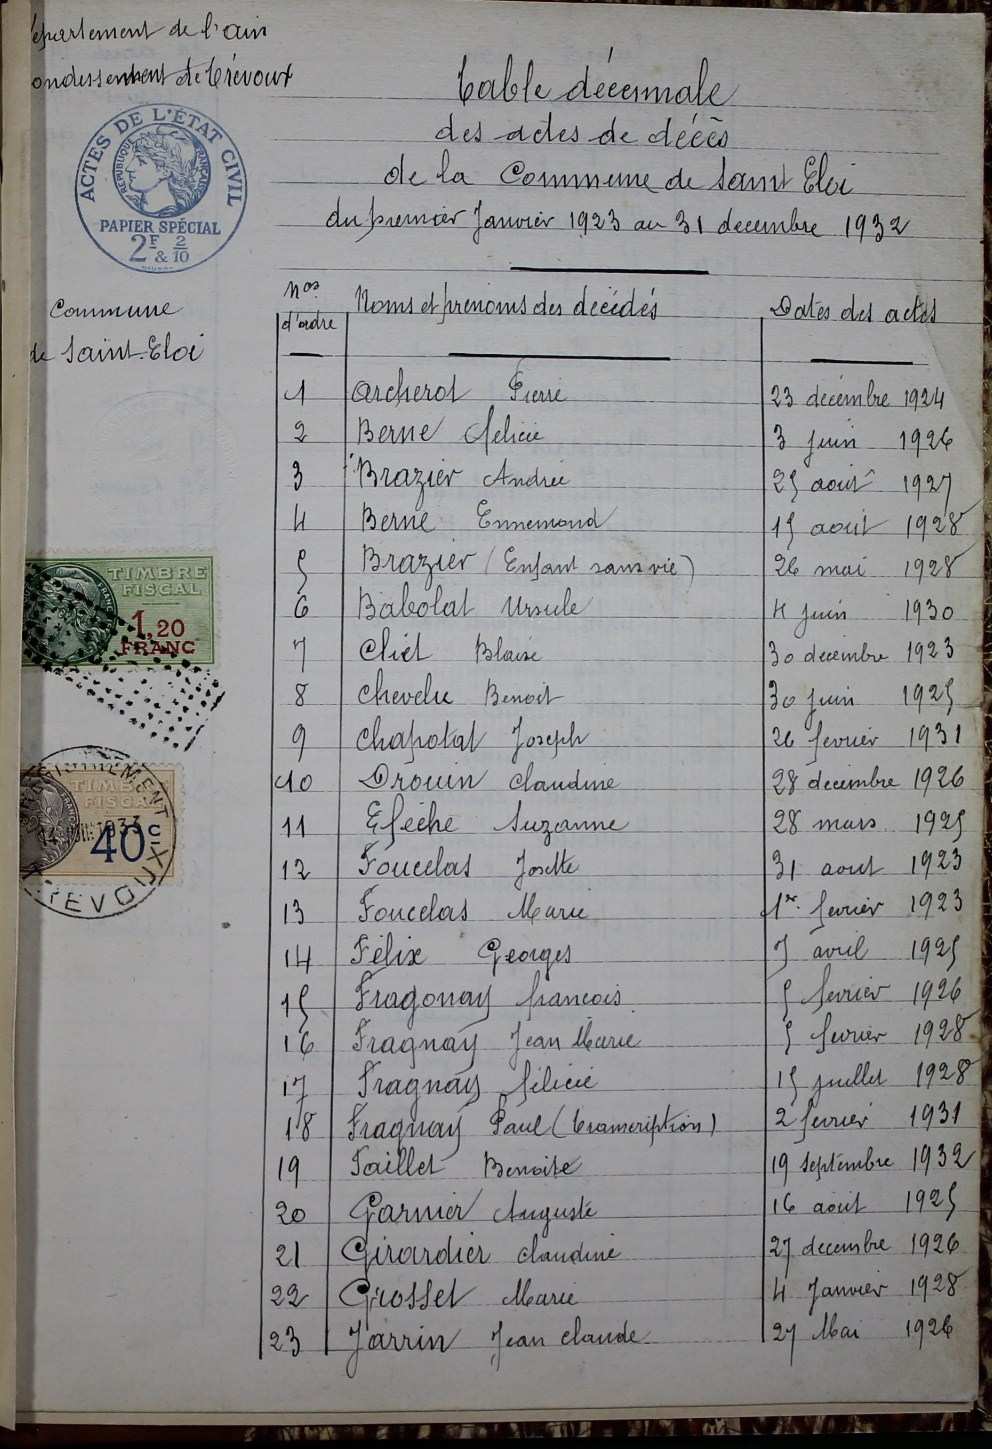 épartement de l'ain
ondissement de Trévoux
ACTES DE L'ÉTAT CIVIL
RÉPUBLIQUE FRANÇAISE
PAPIER SPÉCIAL
2F & 2/10
Commune
de Saint-Eloi
Table décennale
des actes de décès
de la Commune de Saint Eloi
du premier Janvier 1923 au 31 decembre 1932
Nos d'ordre Noms et prenoms des décédés Dates des actes
1 Archerot Pierre 23 décembre 1924
2 Berne félicie 3 juin 1926
3 Brazier Andrée 25 août 1927
4 Berne Ennemond 15 août 1928
5 Brazier (Enfant sans vie) 26 mai 1928
6 Babolat Ursule 4 juin 1930
7 Cliet Blaise 30 decembre 1923
8 Chevelu Benoit 30 juin 1925
9 Chapolat Joseph 26 fevrier 1931
10 Drouin Claudine 28 decembre 1926
11 Eféche Suzanne 28 mars 1925
12 Foucelas Josette 31 aout 1923
13 Foucelas Marie 1er fevrier 1923
14 Félix Georges 7 avril 1925
15 Fragonay francois 5 fevrier 1926
16 Fragnay Jean Marie 5 fevrier 1928
17 Fragnay félicie 15 juillet 1928
18 Fragnay Paul (transcription) 2 fevrier 1931
19 Faillet Benoite 19 septembre 1932
20 Garnier Auguste 16 août 1925
21 Girardier Claudine 27 decembre 1926
22 Grosset Marie 4 Janvier 1928
23 Jarrin Jean Claude 27 Mai 1926
TIMBRE
FISCAL
1,20
FRANC
TIMBRE
FISCAL
40c
1933
TREVOUX